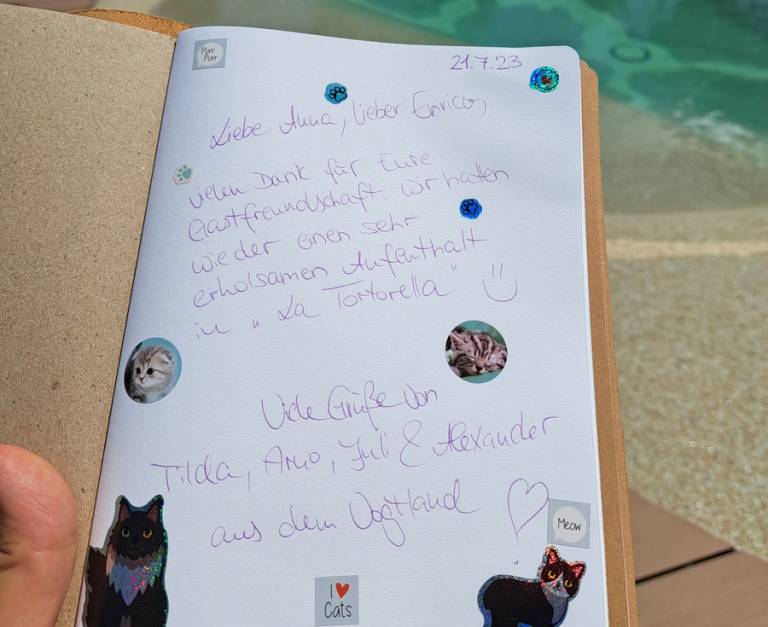 Purr
Purr
21.7.23
Liebe Anna, lieber Enrico,
vielen Dank für Eure
Gastfreundschaft. Wir hatten
wieder einen sehr
erholsamen Aufenthalt
in „La Tortorella“
Viele Grüße von
Tilda, Arno, Juli & Alexander
aus dem Vogtland
Meow
I ♥
Cats